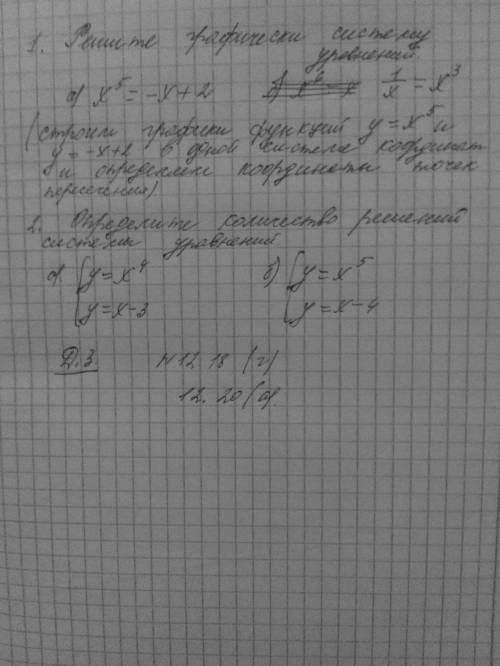 1. Решите графически систему
уравнений.
а) x⁵ = -x+2 1/x = x³
(строим графики функций y = x⁵ и
y = -x+2 в одной системе координат
и определяем координаты точек
пересечения).
2. Определите количество решений
системы уравнений.
а) { y = x⁴ б) { y = x⁵
y = x-3 y = x-4
Д.З. №12.18 (г)
12.20 (а)